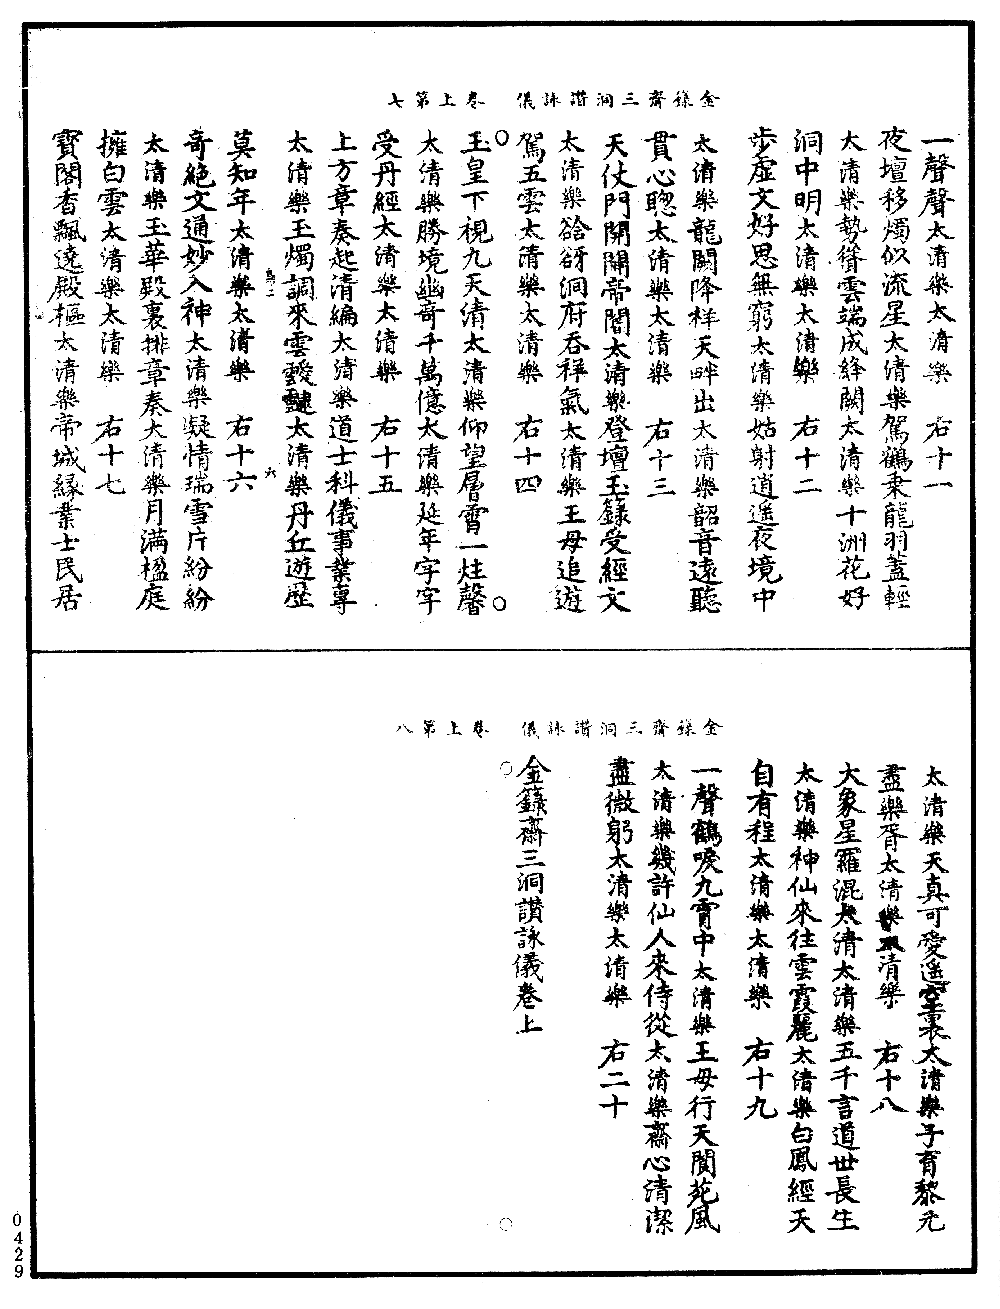 金籙齋三洞讚詠儀　卷上第七
一聲聲太清樂太清樂　右十一
夜壇移燭似流星太清樂駕鶴乘龍羽蓋輕
太清樂勢聳雲端成絳闕太清樂十洲花好
洞中明太清樂太清樂　右十二
步虛文好思無窮太清樂姑射逍遙夜境中
太清樂龍闕降祥天畔出太清樂韶音遠聽
貫心聰太清樂太清樂　右十三
天仗門開閘帝閽太清樂登壇玉籙受經文
太清樂谽谺洞府吞祥氣太清樂王母追遊
駕五雲太清樂太清樂　右十四
玉皇下視九天清太清樂仰望層霄一炷馨
太清樂勝境幽奇千萬億太清樂延年字字
受丹經太清樂太清樂　右十五
上方章奏起清編太清樂道士科儀事業專
太清樂玉燭調來雲靉靆太清樂丹丘遊歷
莫知年太清樂太清樂　右十六
奇絕文通妙入神太清樂凝情瑞雪片紛紛
太清樂玉華殿裏排章奏太清樂月滿楹庭
擁白雲太清樂太清樂　右十七
寶閣香飄遶殿樞太清樂帝城緣業士民居
金籙齋三洞讚詠儀　卷上第八
太清樂天真可愛遙空裏太清樂子育黎元
盡樂胥太清樂太清樂　右十八
大象星羅混太清太清樂五千言道世長生
太清樂神仙來往雲霞麗太清樂白鳳經天
自有程太清樂太清樂　右十九
一聲鶴唳九霄中太清樂王母行天閬苑風
太清樂幾許仙人來侍從太清樂齋心清潔
盡微躬太清樂太清樂　右二十
金籙齋三洞讚詠儀卷上
0429